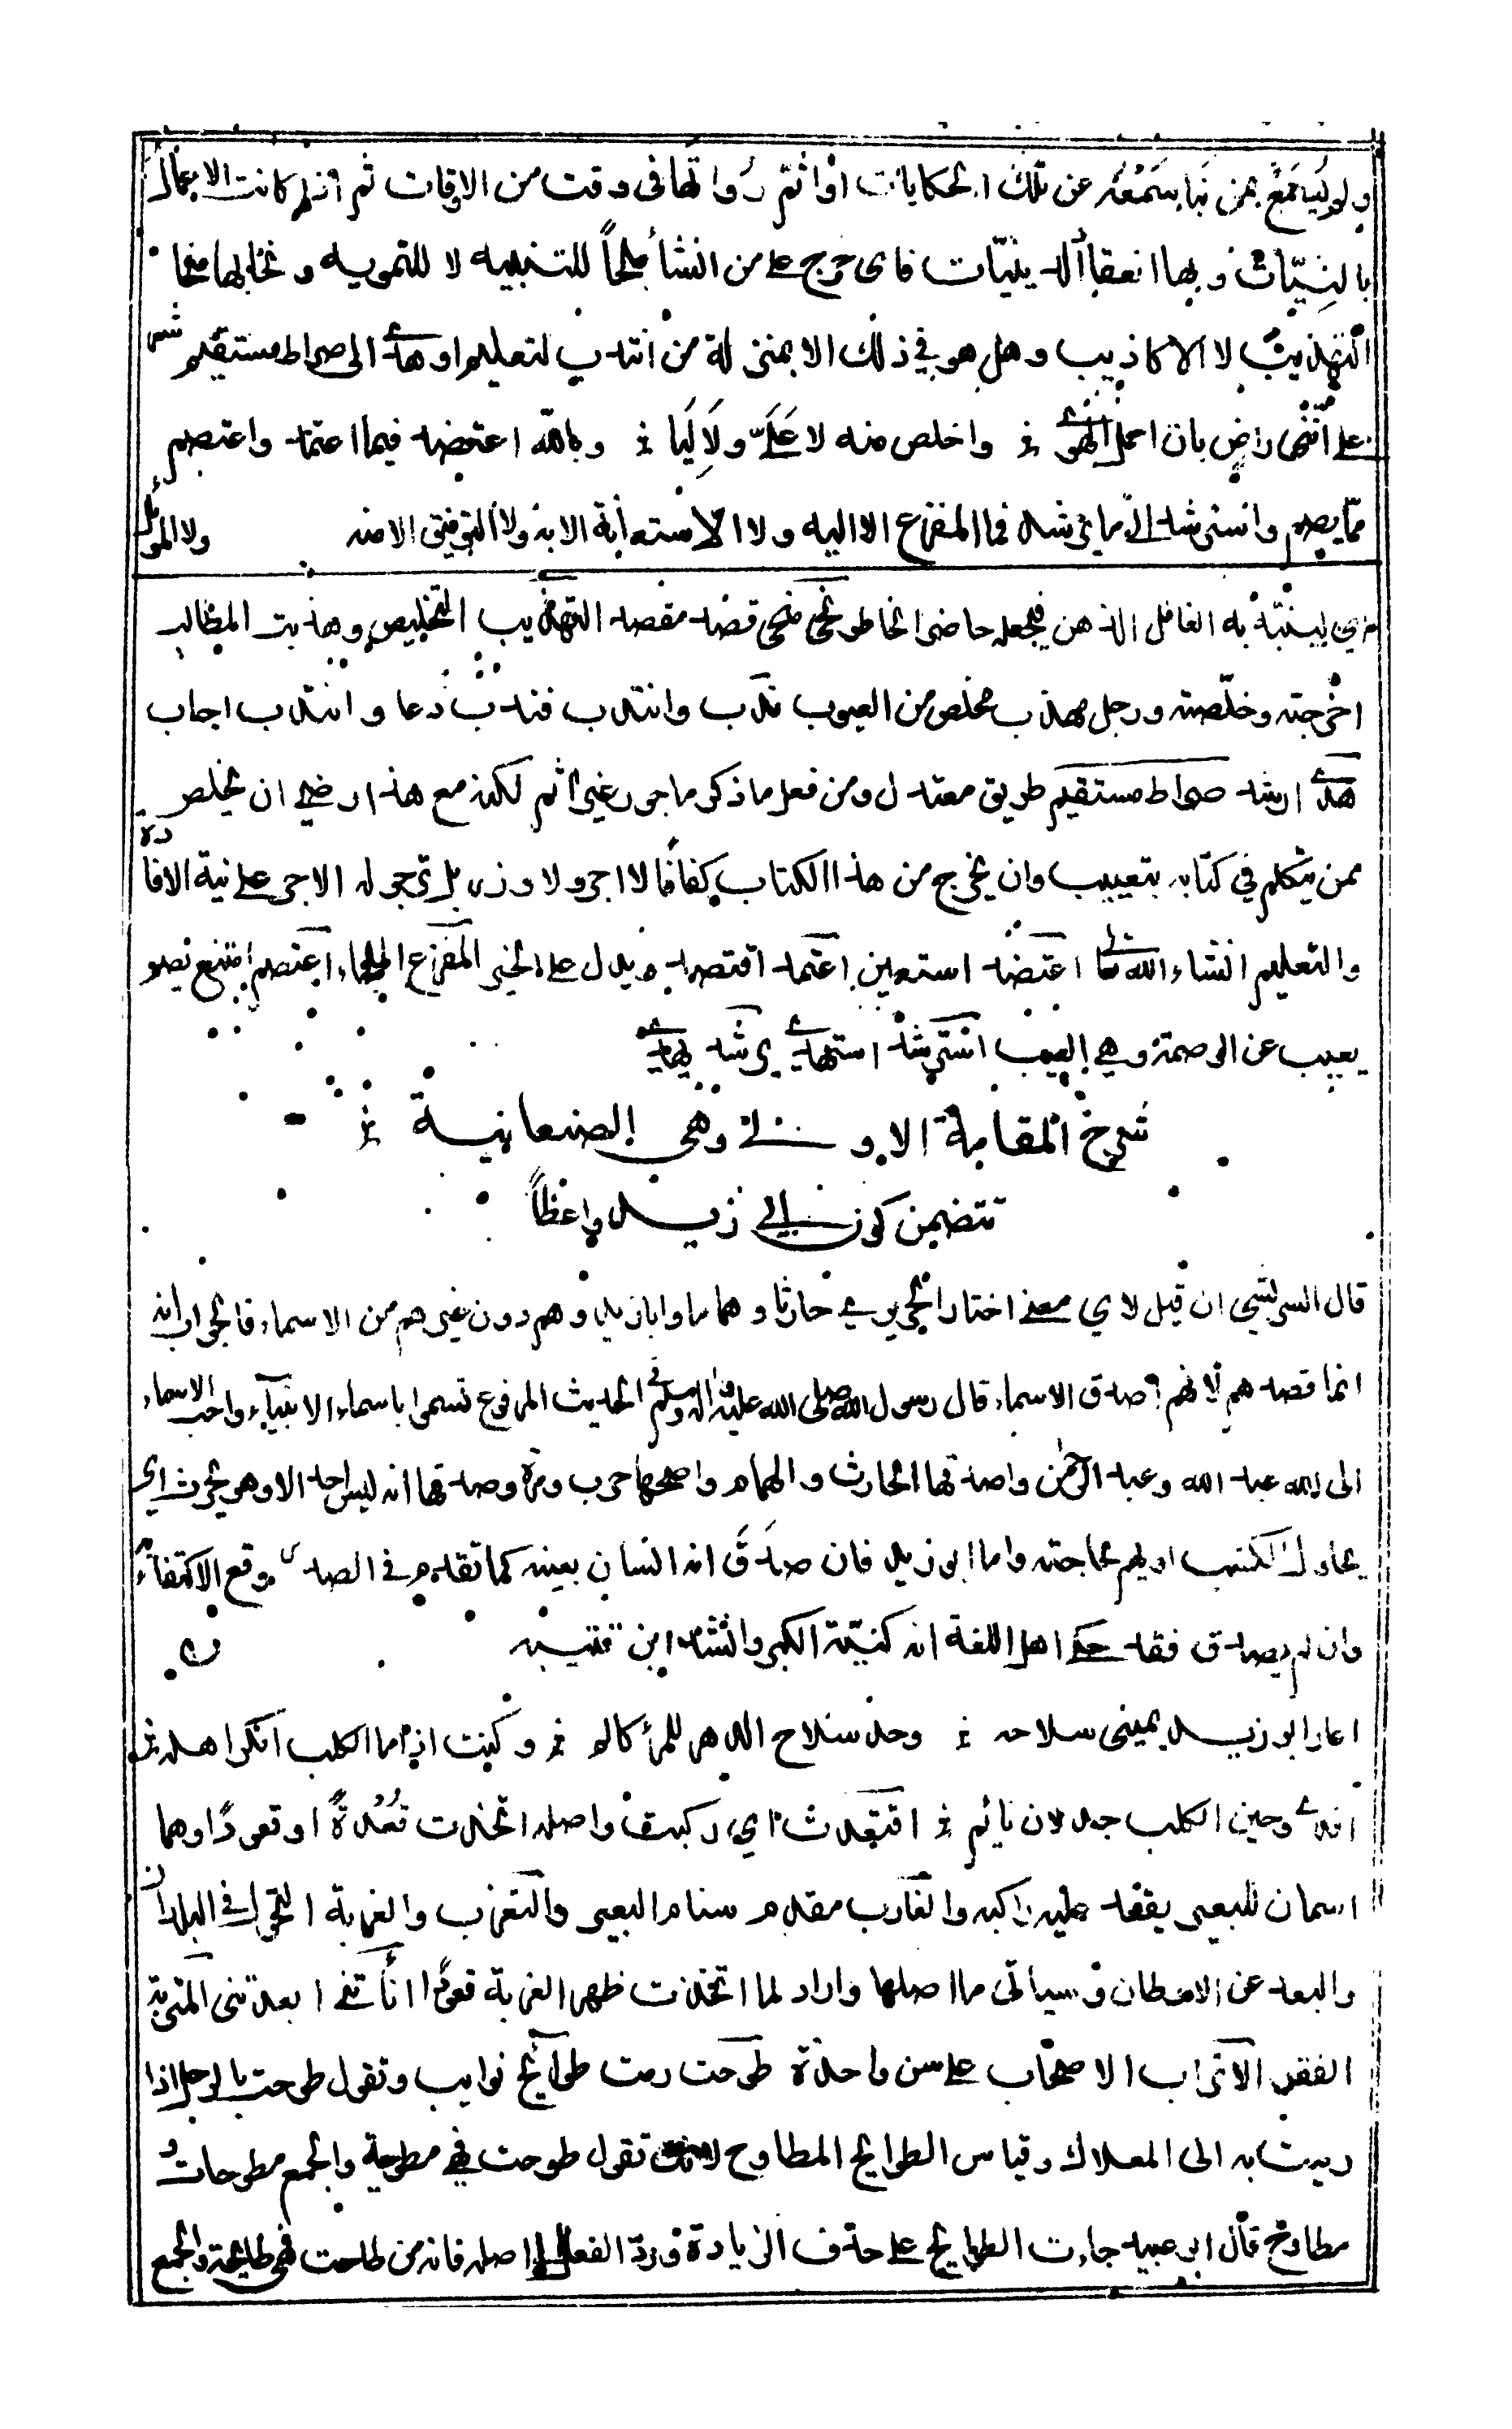 ولم يسمع بمن نبا سمعه عن تلك الحكايات او اثم رواتها في وقت من الاوقات ثم اذا كانت الاعمال
بالنيات وبها انعقاد الدينيات فاي حرج على من انشأ ملحاً للتنبيه لا للتمويه ونحا بها منحا
التهذيب لا الاكاذيب وهل هو في ذلك الا بمنزلة من انتدب لتعليم او هدى الى صراط مستقيم شعر
على انني راض بان احمل الهوى ؛ واخلص منه لا عليّ ولا ليا ؛ وبالله اعتضد فيما اعتمد واعتصم
مما يصم واسترشد الى ما يرشد فما المفزع الا اليه ولا الاستعانة الا به ولا التوفيق الا منه ولا الموئل
لينتبه به الغافل الذهن فيجعله حاضر الخاطر نحى منحى قصد مقصد التهذيب التخليص وهذبت المطالب
اخرجته وخلصته ورجل مهذب مخلص من العيوب ندب وانتدب فندب دعا وانتدب اجاب
هدى ارشد صراط مستقيم طريق معتدل ومن فعل ما ذكر ماجور غير اثم لكنه مع هذا رضي ان يخلص
ممن يتكلم في كتابه بتعييب وان يخرج من هذا الكتاب كفافا لا اجر ولا وزر بل يرجو له الاجر على نية الافادة
والتعليم انشاء الله تعا اعتضد استعين اعتمد اقتصد ويدل على الخير المفزع الملجاء اعتصم امتنع نصم
يعيب عن الوصمة وهي العيب استرشد استهدي يرشد يهدي
شرح المقامة الاولى وهي الصنعانية ؛
تتضمن كون ابي زيد واعظاً
قال الشريشي ان قيل لاي معنى اختار الحريري حارثا وهماما وابا زيد وهم دون غيرهم من الاسماء فالجواب انه
انما قصدهم لانهم اصدق الاسماء قال رسول الله صلى الله عليه واله وسلم في الحديث المرفوع تسموا باسماء الانبياء واحب الاسماء
الى الله عبد الله وعبد الرحمن واصدقها الحارث والهمام واقبحها حرب ومرة وصدقها انه ليس احد الا وهو يحرث اي
يحاول الكسب او يهم بحاجته واما ابو زيد فان صدق انه انسان بعينه كما تقدم في الصدر وقع الاكتفاء
وان لم يصدق فقد حكى اهل اللغة انه كنية الكبر وانشد ابن قتيبه
اعار ابو زيد يميني سلاحه ؛ وحد سلاح الدهر للمرء كالم ؛ وكنت اذا ما الكلب انكر اهله
افدى وحين الكلب جدلان نايم ؛ اقتعدت اي ركبت واصله اتخذت قعدة او قعودا وهما
اسمان للبعير يقتعد عليه راكبه والغارب مقدم سنام البعير والتغرب والغربة التحول في البلدان
والبعد عن الاوطان وسياتي ما اصلها واراد لما اتخذت ظهر الغربة قعودا اناتني ابعدتني المتربة
الفقر الاتراب الاصحاب على سن واحدة طوحت رمت طوايح نوايب وتقول طوحت بالرجل اذا
رميت به الى المهلاك وقياس الطوايح المطاوح لانك تقول طوحت فهي مطوحة والجمع مطوحات و
مطاوح قال ابو عبيد جاءت الطوايح على حذف الزيادة ورد الفعل الى اصله فانه من طاحت فهي طايحة والجمع